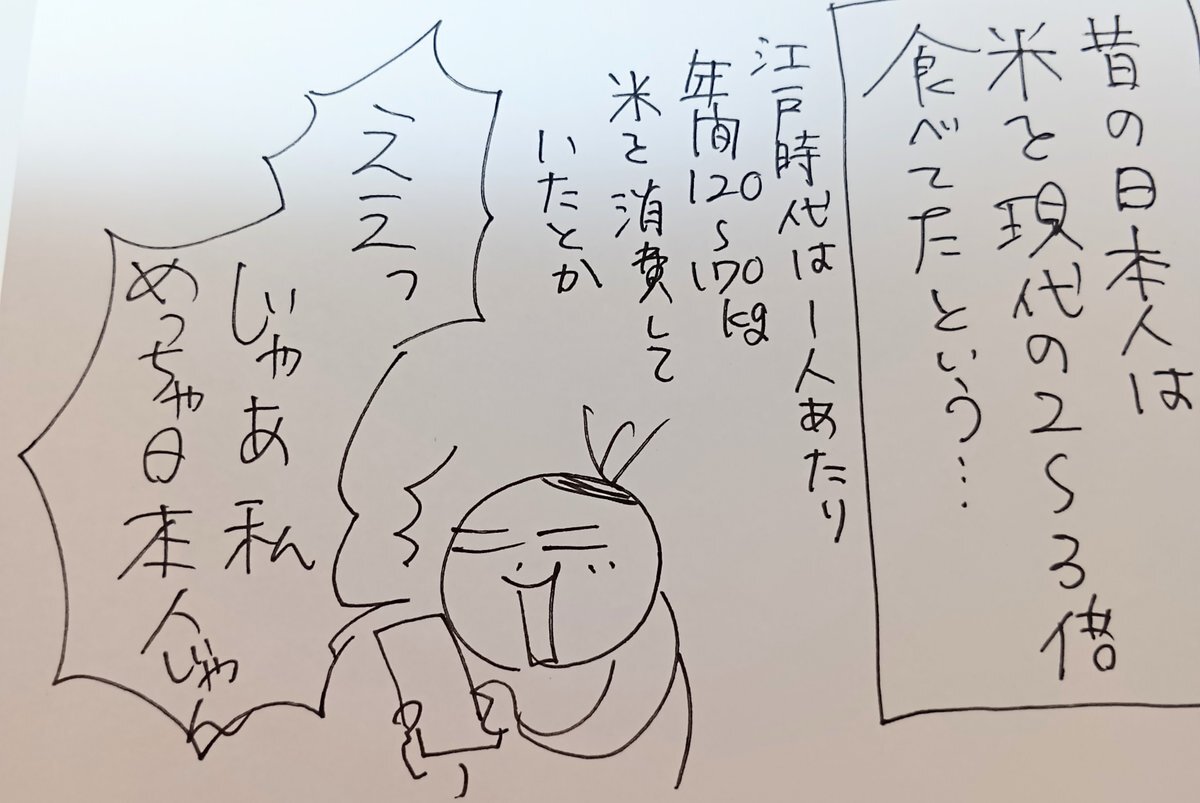 昔の日本人は
米を現代の2～3倍
食べてたという…
江戸時代は1人あたり
年間120～170kg
米を消費して
いたとか
ええっ
じゃあ私
めっちゃ日本人じゃん